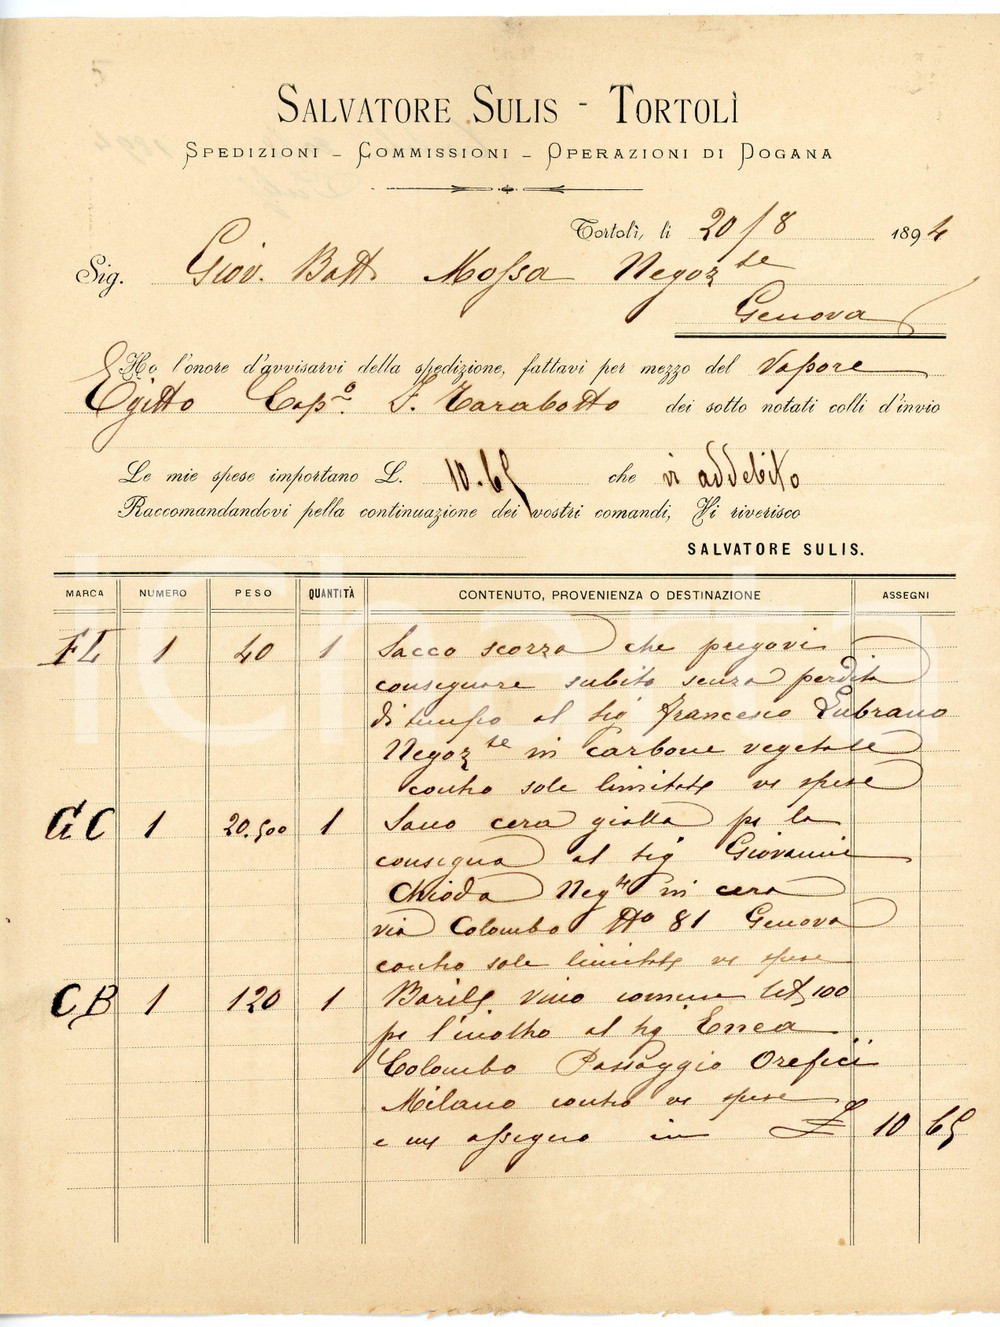 SALVATORE SULIS - TORTOLÌ
SPEDIZIONI - COMMISSIONI - OPERAZIONI DI DOGANA
Tortolì, li 20/8 1894
Sig. Giov. Batt. Mossa Negozte
Genova
Ho l'onore d'avvisarvi della spedizione, fattavi per mezzo del Vapore
Egitto Capo. F. Tarabotto dei sotto notati colli d'invio
Le mie spese importano L. 10.65 che vi addebito
Raccomandandovi pella continuazione dei vostri comandi, Vi riverisco
SALVATORE SULIS.
MARCA NUMERO PESO QUANTITÀ CONTENUTO, PROVENIENZA O DESTINAZIONE ASSEGNI
FL 1 40 1 Sacco scorza che pregovi
consegnare subito senza perdita
di tempo al sig Francesco Lubrano
Negozte in carbone vegetale
contro sole limitate vs spese
GC 1 20.500 1 Sacco cera gialla pr la
consegna al sig Giovanni
Chioda Negte in cera
via Colombo No 81 Genova
contro sole limitate vs spese
CB 1 120 1 Barile vino comune Lit 100
pr l'inoltro al sig Enea
Colombo Passaggio Orefici
Milano contro vs spese
e assegno in £ 10 65